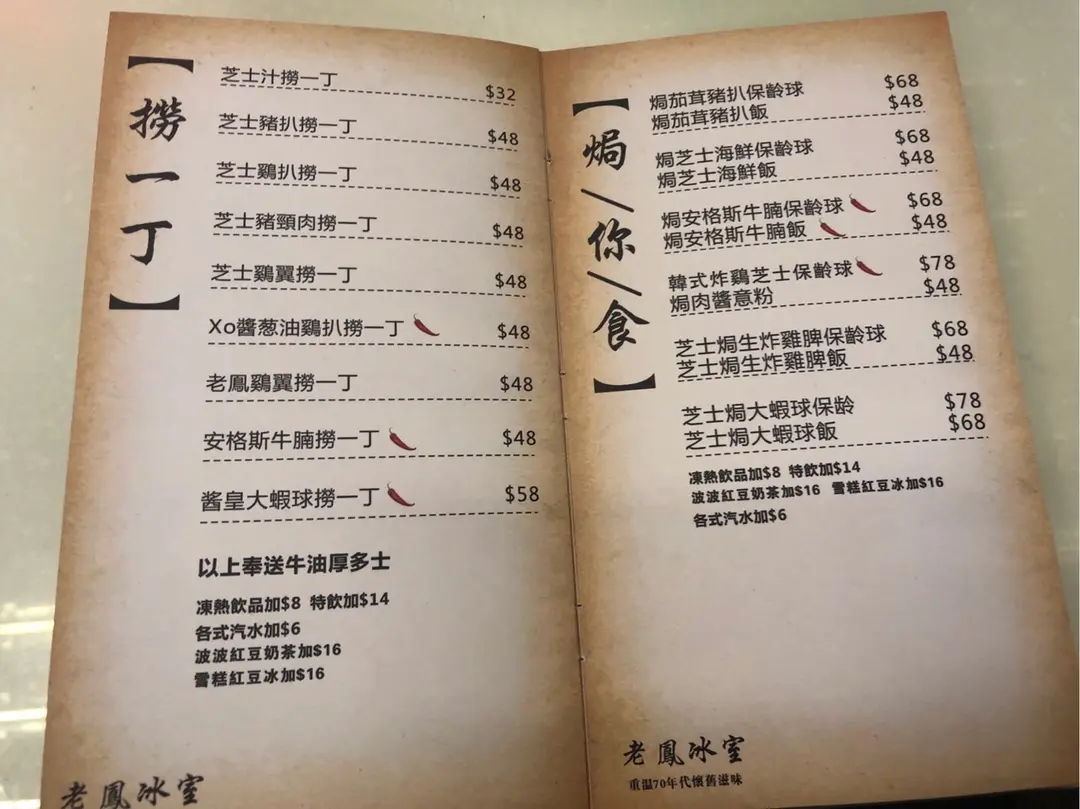 【撈一丁】
芝士汁撈一丁 $32
芝士豬扒撈一丁 $48
芝士鷄扒撈一丁 $48
芝士豬頸肉撈一丁 $48
芝士鷄翼撈一丁 $48
Xo醬葱油鷄扒撈一丁 $48
老鳳鷄翼撈一丁 $48
安格斯牛腩撈一丁 $48
酱皇大蝦球撈一丁 $58
以上奉送牛油厚多士
凍熱飲品加$8 特飲加$14
各式汽水加$6
波波紅豆奶茶加$16
雪糕紅豆冰加$16
老鳳冰室
【焗/你/食】
焗茄茸豬扒保齡球 $68
焗茄茸豬扒飯 $48
焗芝士海鮮保齡球 $68
焗芝士海鮮飯 $48
焗安格斯牛腩保齡球 $68
焗安格斯牛腩飯 $48
韓式炸鷄芝士保齡球 $78
焗肉醬意粉 $48
芝士焗生炸雞脾保齡球 $68
芝士焗生炸雞脾飯 $48
芝士焗大蝦球保龄 $78
芝士焗大蝦球飯 $68
凍熱飲品加$8 特飲加$14
波波紅豆奶茶加$16 雪糕紅豆冰加$16
各式汽水加$6
老鳳冰室
重溫70年代懷舊滋味